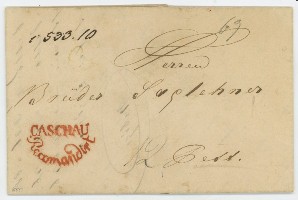 533.10
63
Herren
Brüder
CASCHAU
Recomandirt
Pest.